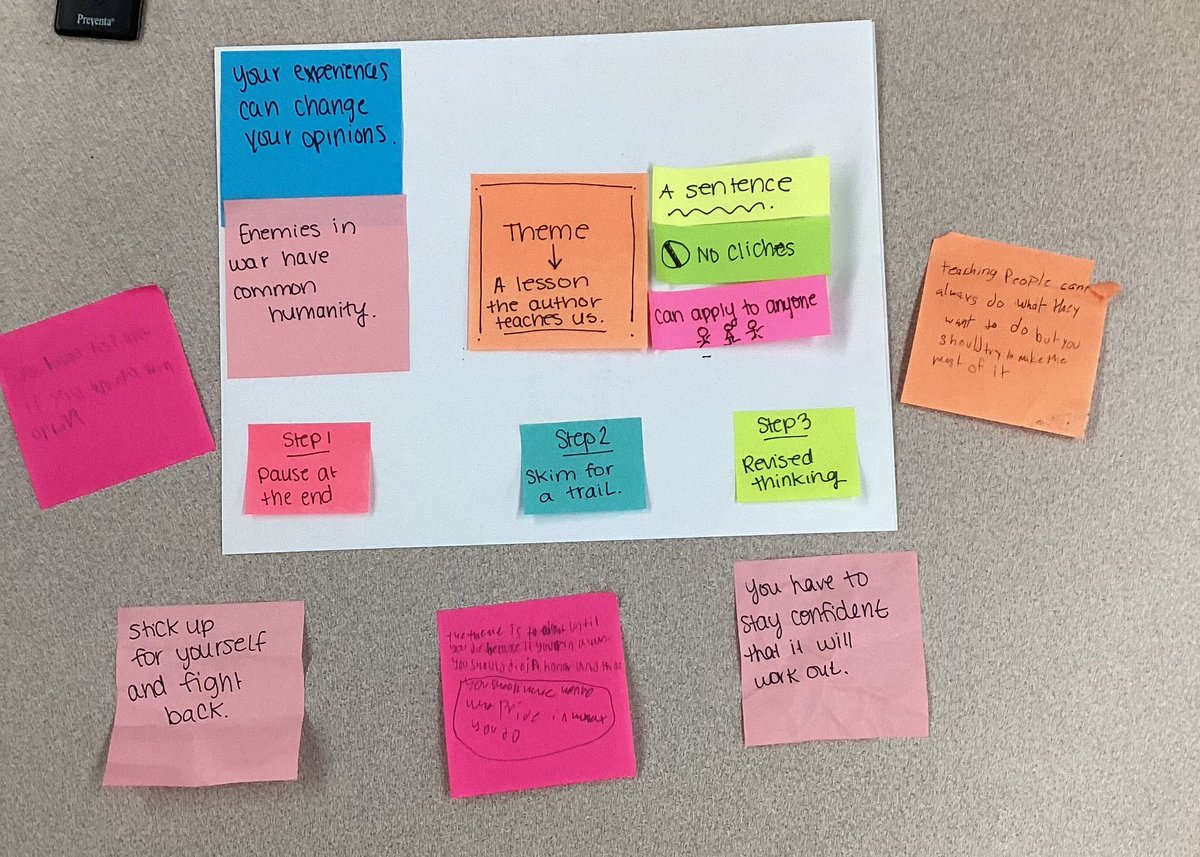 Preventa®
your experiences
can change
your opinions.
Enemies in
war have
common
humanity.
Theme
A lesson
the author
teaches us.
A sentence
No cliches
can apply to anyone
Step 1
Pause at
the end
Step 2
Skim for
a trail.
Step 3
Revised
thinking
teaching People
always do what they
want to do but you
should try to make the
most of it
stick up
for yourself
and fight
back.
the theme is until
you should honor and
You should
pride in what
you do
you have to
stay confident
that it will
work out.